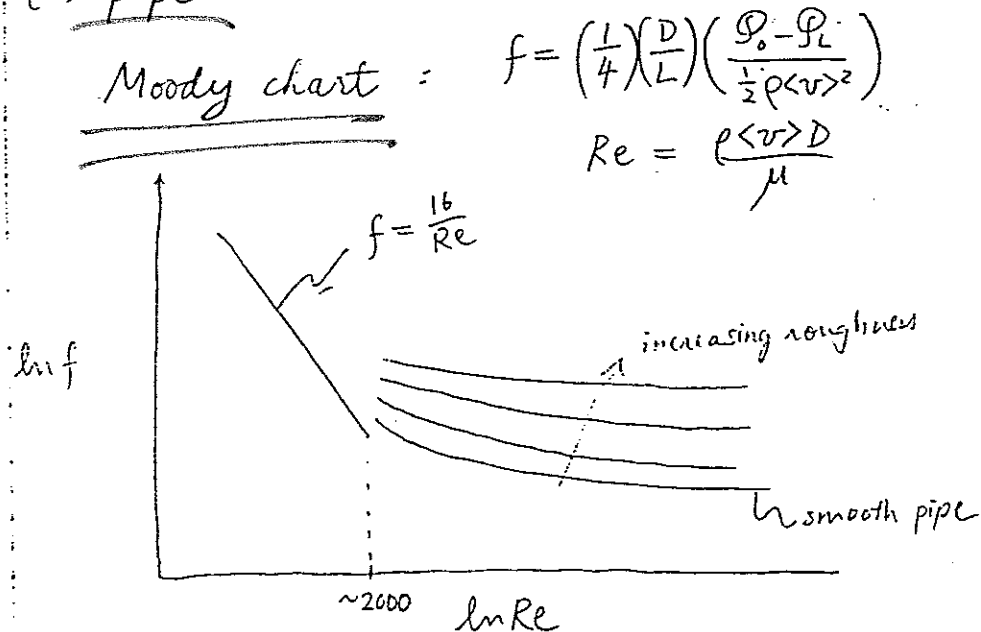 pipe
Moody chart : f = (1/4)(D/L)((𝒫₀ - 𝒫_L)/(½ρ<v>²))
Re = ρ<v>D/μ
f = 16/Re
increasing roughness
ln f
smooth pipe
~2000
ln Re